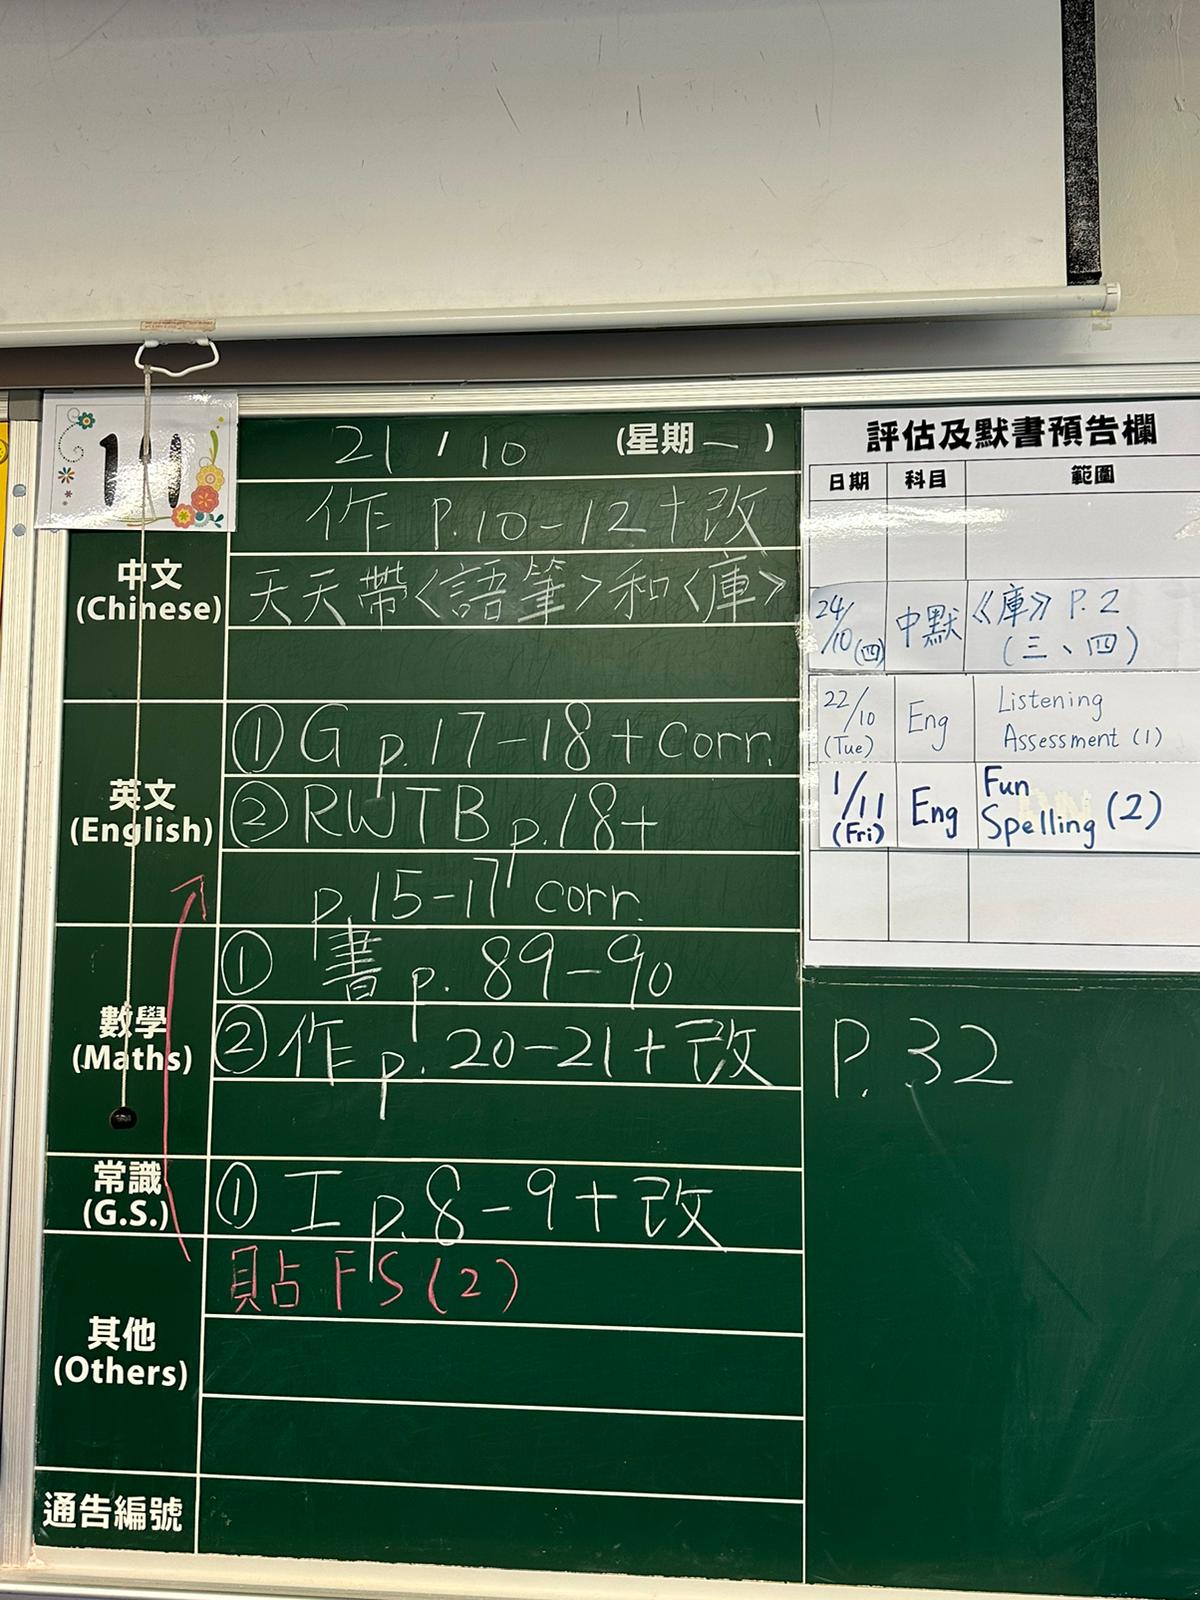 21 / 10 (星期一)
作 P.10-12+改
中文
(Chinese)
天天帶<語筆>和<庫>
① G p.17-18+corr.
英文
(English)
② RWTB p.18+
p.15-17 corr.
① 書 p. 89-90
數學
(Maths)
② 作 p. 20-21+改
常識
(G.S.)
① 工 p.8-9+改
貼 FS(2)
其他
(Others)
通告編號
評估及默書預告欄
日期 科目 範圍
24/10(四) 中默 《庫》 P.2
(三、四)
22/10 (Tue) Eng Listening
Assessment (1)
1/11 (Fri) Eng Fun
Spelling (2)
P.32